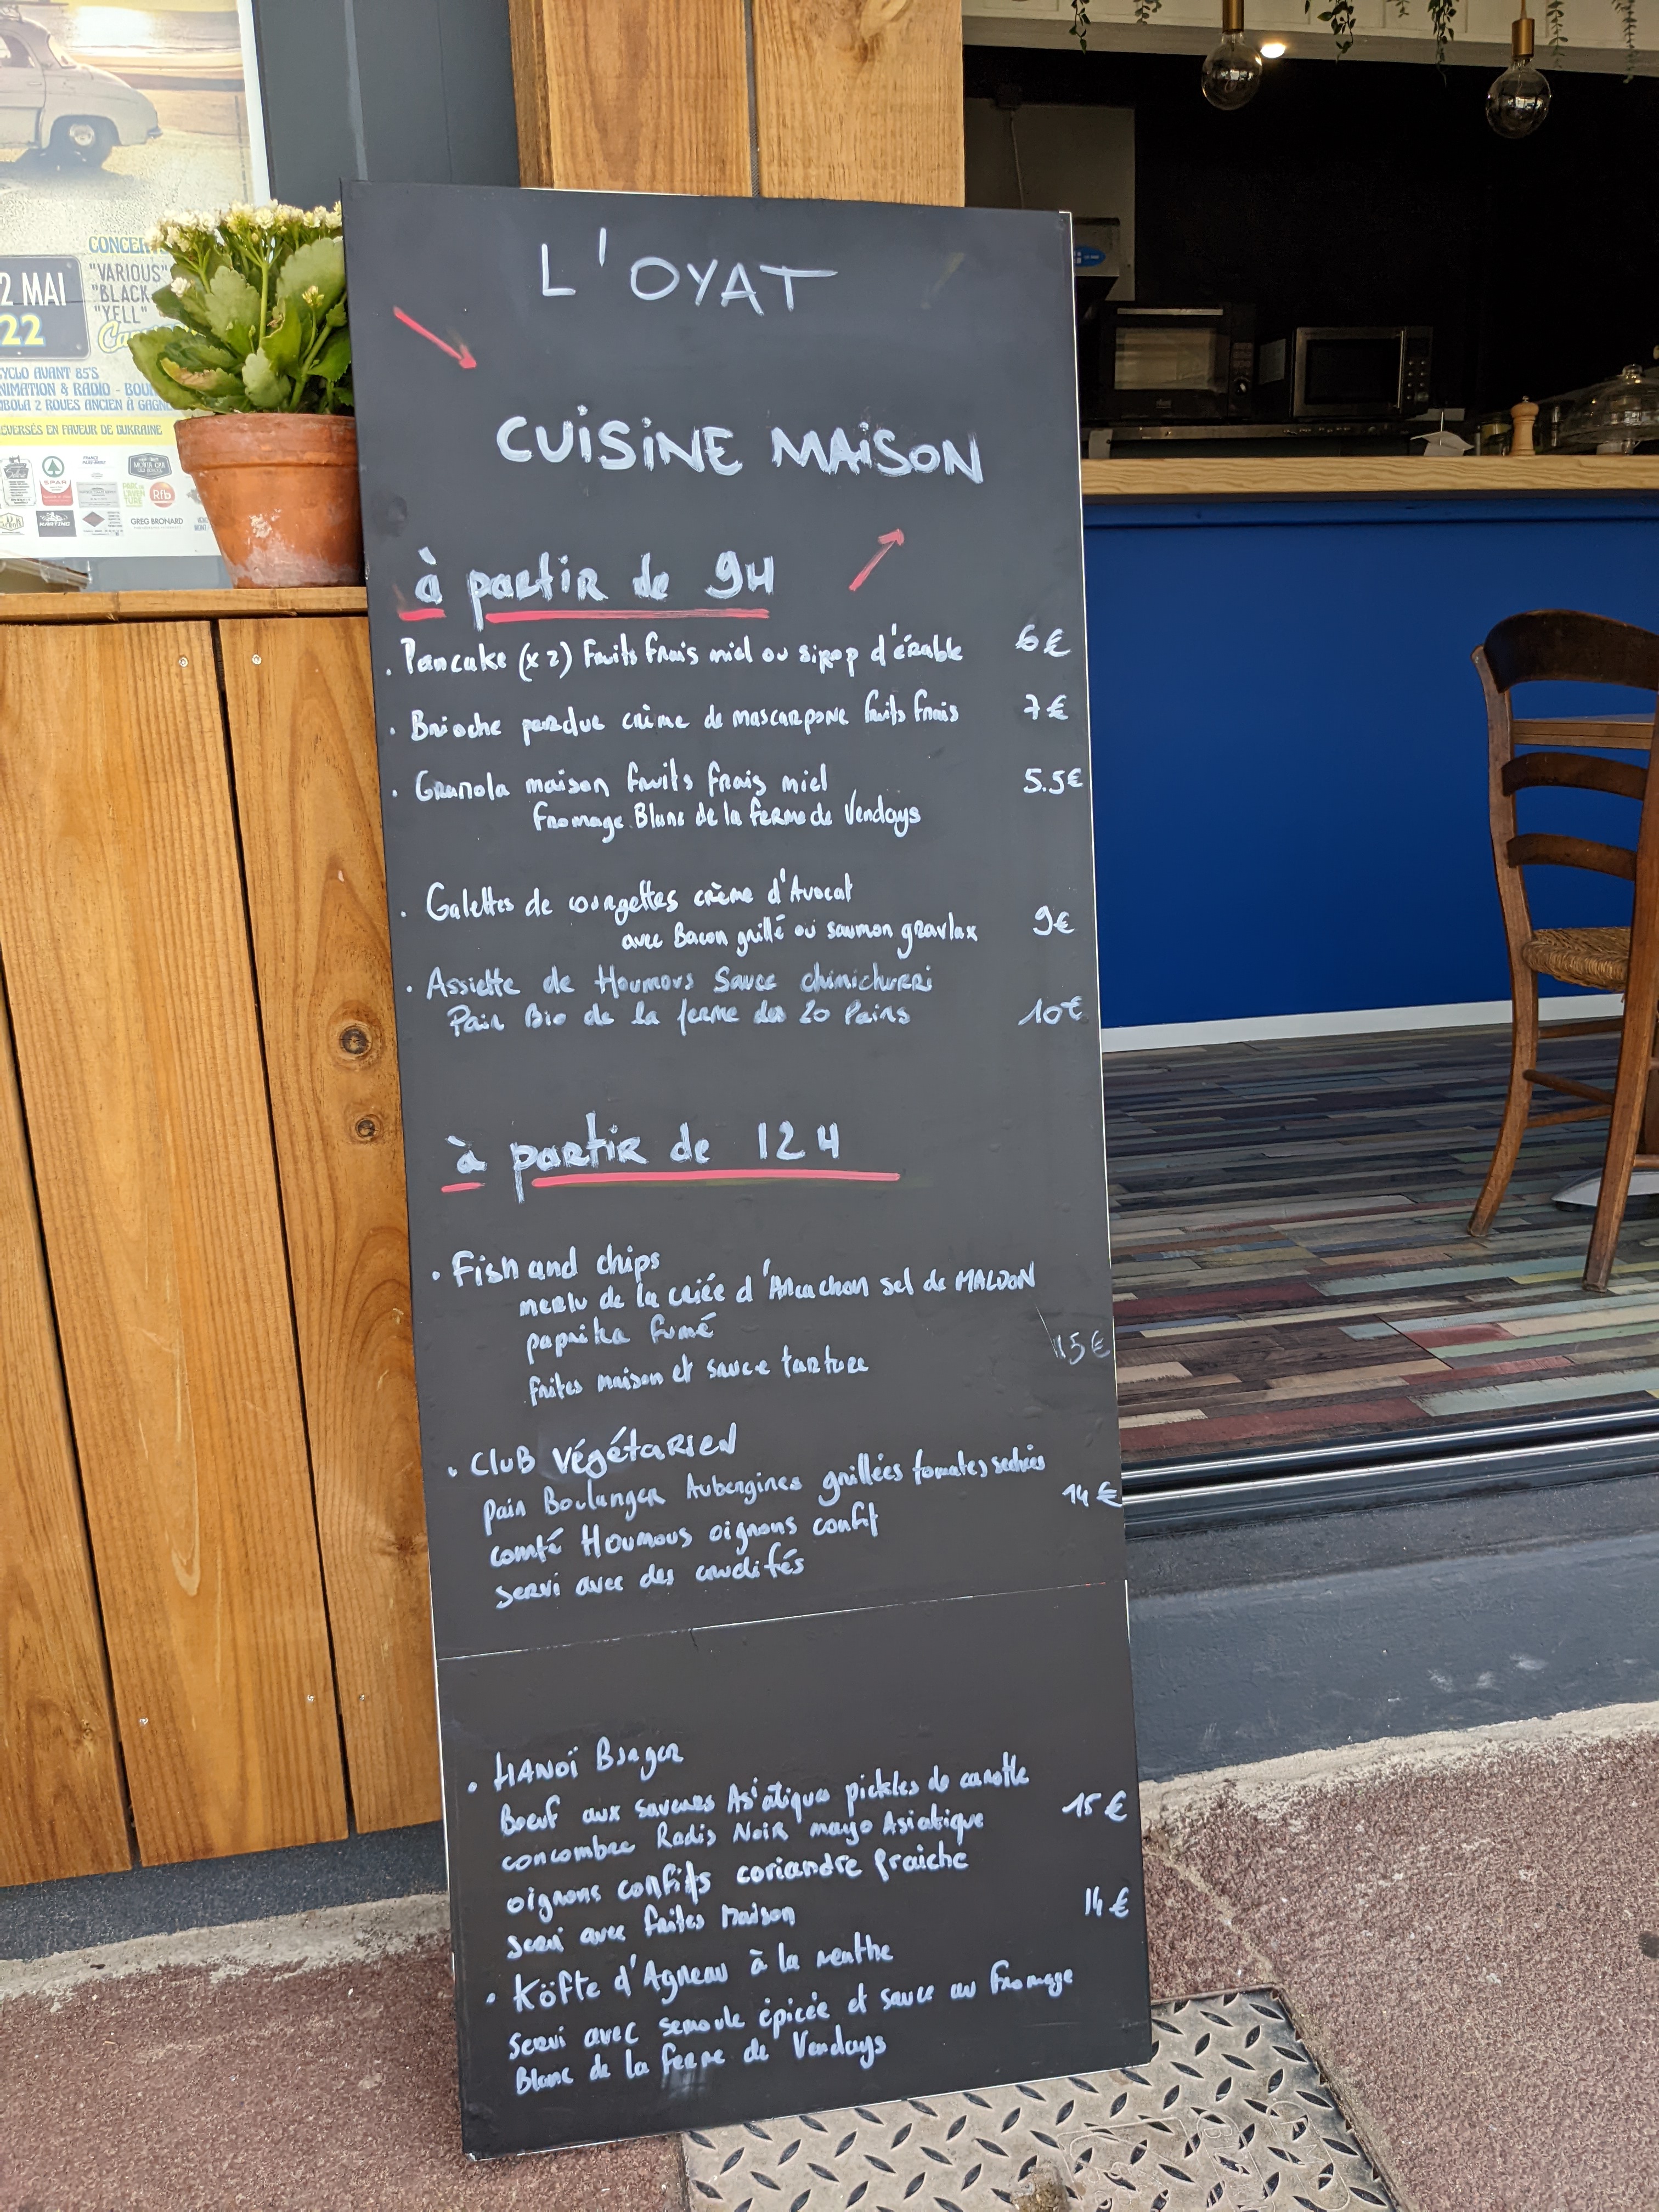 L'OYAT
CUISINE MAISON
à partir de 9H
. Pancake (x2) Fruits frais miel ou sirop d'érable 6€
. Brioche perdue crème de mascarpone fruits frais 7€
. Granola maison fruits frais miel 5.5€
fromage Blanc de la ferme de Vendays
. Galettes de courgettes crème d'Avocat
avec Bacon grillé ou saumon gravlax 9€
. Assiette de Houmous Sauce chimichurri
Pain Bio de la ferme des 20 Pains 10€
à partir de 12H
. Fish and chips
merlu de la criée d'Arcachon sel de MALDON
paprika fumé
frites maison et sauce tartare 15€
. CluB végétarien
pain Boulanger Aubergines grillées tomates sechées
comté Houmous oignons confit 14€
servi avec des crudités
. HANoï Burger
Boeuf aux saveurs Asiatiques pickles de carotte
concombre Radis Noir mayo Asiatique 15€
oignons confits coriandre fraiche
servi avec frites Maison 14€
. Köfte d'Agneau à la menthe
servi avec semoule épicée et sauce au fromage
Blanc de la ferme de Vendays
2 MAI
22
"VARIOUS"
"BLACK
"YELL"
CYCLO AVANT 85'S
NIMATION & RADIO
2 ROUES ANCIEN À
EVERSÉS EN FAVEUR DE L'UKRAINE
SPAR
Rfb
KARTING
GREG BRONARD